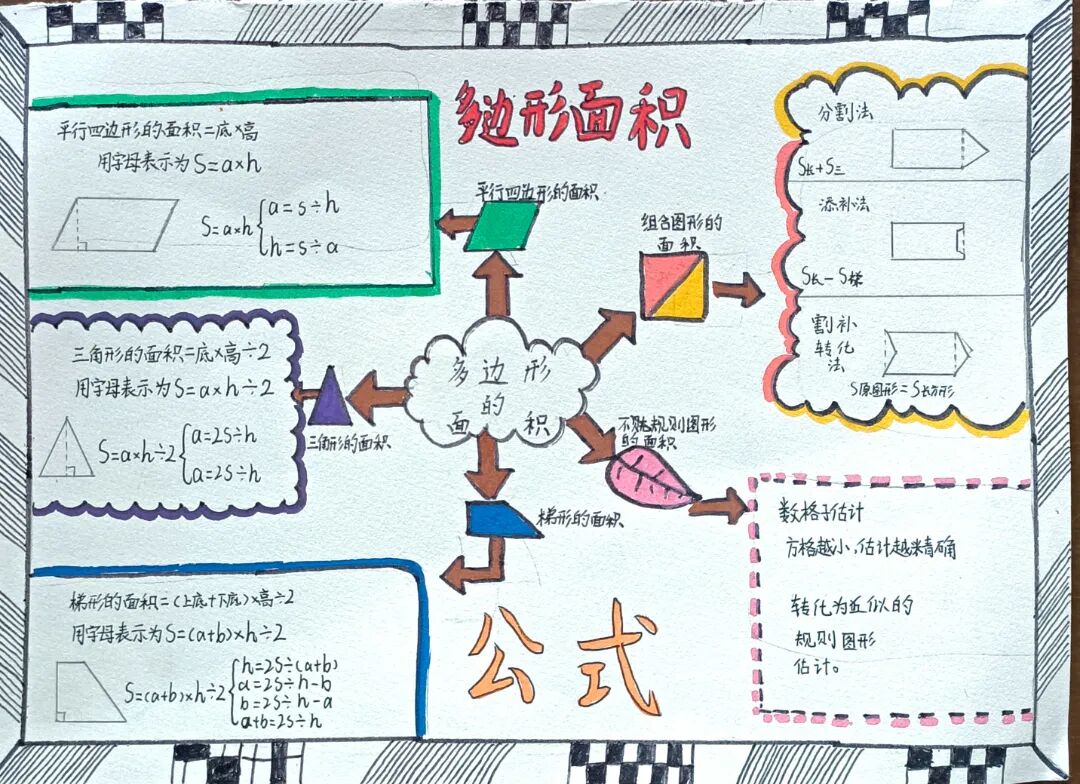 多边形面积
平行四边形的面积=底×高
用字母表示为S=a×h
S=a×h
a=s÷h
h=s÷a
平行四边形的面积
组合图形的
面积
分割法
S长+S三
添补法
S长-S梯
割补
转化
法
S原图形=S长方形
三角形的面积=底×高÷2
用字母表示为S=a×h÷2
S=a×h÷2
a=2S÷h
a=2S÷h
三角形的面积
多边形
的
面积
规则图形
的面积
梯形的面积
数格子估计
方格越小,估计越精确
转化为近似的
规则图形
估计。
梯形的面积=(上底+下底)×高÷2
用字母表示为S=(a+b)×h÷2
S=(a+b)×h÷2
h=2S÷(a+b)
a=2S÷h-b
b=2S÷h-a
a+b=2S÷h
公式